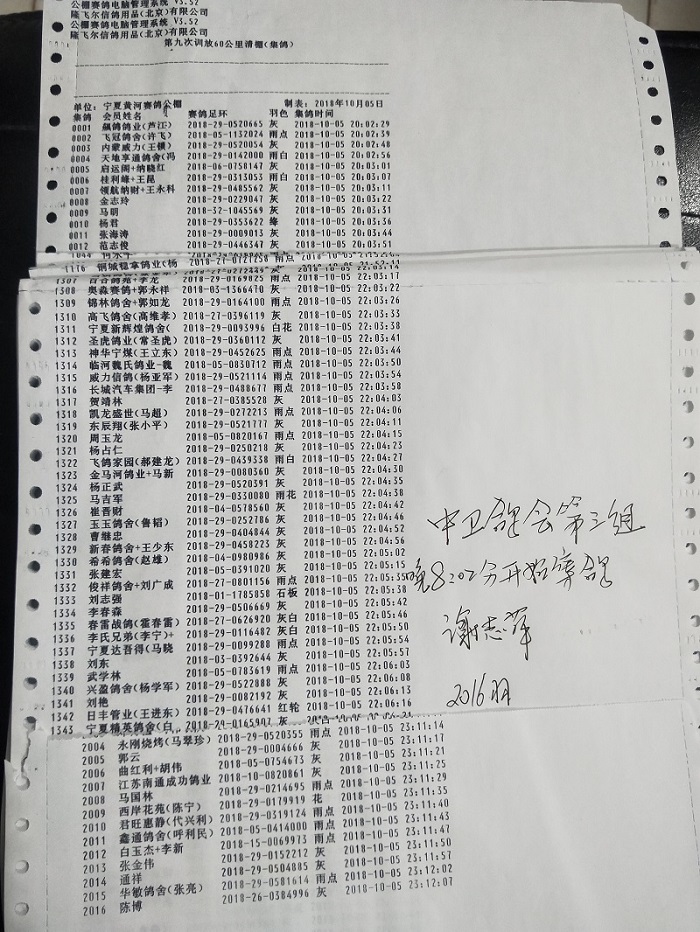 公棚赛鸽电脑管理系统 V3.52
隆飞尔信鸽用品(北京)有限公司
公棚赛鸽电脑管理系统 V3.52
隆飞尔信鸽用品(北京)有限公司
第九次训放60公里清棚(集鸽)
单位: 宁夏黄河赛鸽公棚 制表: 2018年10月05日
集鸽 会员姓名 赛鸽足环 羽色 集鸽时间
0001 飙鸽鸽业(芦江) 2018-29-0520665 灰 2018-10-05 20:02:29
0002 飞冠鸽舍(许飞) 2018-05-1132024 雨点 2018-10-05 20:02:39
0003 内蒙威力(王锁) 2018-29-0520054 灰 2018-10-05 20:02:48
0004 天地享通鸽舍(冯 2018-29-0142000 雨白 2018-10-05 20:02:56
0005 启运阁+纳晓红 2018-06-0758147 灰 2018-10-05 20:03:01
0006 桂利峰+王昆 2018-29-0313053 雨白 2018-10-05 20:03:07
0007 领航纳财+王永科 2018-29-0485562 灰 2018-10-05 20:03:11
0008 金志玲 2018-29-0229047 灰 2018-10-05 20:03:22
0009 马明 2018-32-1045569 灰 2018-10-05 20:03:31
0010 杨君 2018-29-0353622 绛 2018-10-05 20:03:36
0011 张海涛 2018-29-0009013 灰 2018-10-05 20:03:44
0012 范志俊 2018-29-0446347 灰 2018-10-05 20:03:51
1176 钢城稳拿鸽业(杨 2018-27-0727258 雨点 2018-10-05
1307 百合鸽苑+李龙 2018-29-0169825 雨点 2018-10-05 22:03:17
1308 奥淼赛鸽+郭永祥 2018-03-1366470 灰 2018-10-05 22:03:22
1309 锦林鸽舍+郭如龙 2018-29-0164100 雨点 2018-10-05 22:03:26
1310 高飞鸽舍(高维孝) 2018-27-0396119 灰 2018-10-05 22:03:33
1311 宁夏新辉煌鸽舍( 2018-29-0093996 白花 2018-10-05 22:03:38
1312 圣虎鸽业(常圣虎) 2018-29-0360112 灰 2018-10-05 22:03:41
1313 神华宁煤(王立东) 2018-29-0452625 雨点 2018-10-05 22:03:44
1314 临河魏氏鸽业-魏 2018-05-0830712 雨点 2018-10-05 22:03:50
1315 威力信鸽(杨亚军) 2018-29-0521114 雨点 2018-10-05 22:03:54
1316 长城汽车集团-李 2018-29-0488677 雨点 2018-10-05 22:03:58
1317 贺靖林 2018-27-0385528 灰 2018-10-05 22:04:03
1318 凯龙盛世(马超) 2018-29-0272213 雨点 2018-10-05 22:04:06
1319 东辰翔(张小平) 2018-29-0521777 灰 2018-10-05 22:04:11
1320 周玉龙 2018-05-0820167 雨点 2018-10-05 22:04:15
1321 杨占仁 2018-29-0250218 灰 2018-10-05 22:04:23
1322 飞鸽家园(郝建龙) 2018-29-0439338 雨白 2018-10-05 22:04:27
1323 金马河鸽业+马新 2018-29-0080360 灰 2018-10-05 22:04:30
1324 杨正武 2018-29-0520391 灰 2018-10-05 22:04:35
1325 马吉军 2018-29-0330080 雨花 2018-10-05 22:04:38
1326 崔晋财 2018-04-0578560 灰 2018-10-05 22:04:42
1327 玉玉鸽舍(鲁韬) 2018-29-0252786 灰 2018-10-05 22:04:46
1328 曹继忠 2018-29-0404844 灰 2018-10-05 22:04:52
1329 新春鸽舍+王少东 2018-29-0458223 灰 2018-10-05 22:04:56
1330 希希鸽舍(赵雄) 2018-04-0980986 灰 2018-10-05 22:05:02
1331 张建宏 2018-05-0391020 灰 2018-10-05 22:05:15
1332 俊祥鸽舍+刘广成 2018-27-0801156 雨点 2018-10-05 22:05:35
1333 刘志强 2018-01-1785858 石板 2018-10-05 22:05:38
1334 李春森 2018-29-0506669 灰 2018-10-05 22:05:42
1335 春雷战鸽(霍春雷) 2018-27-0626920 灰白 2018-10-05 22:05:46
1336 李氏兄弟(李宁)+ 2018-29-0116482 灰白 2018-10-05 22:05:50
1337 宁夏达吾得(马晓 2018-29-0099288 雨点 2018-10-05 22:05:54
1338 刘东 2018-03-0392644 灰 2018-10-05 22:05:57
1339 武学林 2018-05-0783619 雨点 2018-10-05 22:06:03
1340 兴盈鸽舍(杨学军) 2018-29-0522888 灰 2018-10-05 22:06:08
1341 刘艳 2018-29-0082192 灰 2018-10-05 22:06:13
1342 日丰管业(王进东) 2018-29-0476641 红轮 2018-10-05 22:06:16
1343 宁夏精英鸽舍(白 2018-29-0165907 灰 2018-10-05
2004 永刚烧烤(马翠珍) 2018-29-0520355 雨点 2018-10-05 23:11:14
2005 郭云 2018-29-0004666 灰 2018-10-05 23:11:17
2006 曲红利+胡伟 2018-05-0754673 灰 2018-10-05 23:11:21
2007 江苏南通成功鸽业 2018-10-0820861 灰 2018-10-05 23:11:25
2008 马国林 2018-29-0214695 雨点 2018-10-05 23:11:29
2009 西岸花苑(陈宁) 2018-29-0179919 花 2018-10-05 23:11:35
2010 君旺惠静(代兴利) 2018-29-0319124 雨点 2018-10-05 23:11:40
2011 鑫通鸽舍(呼利民) 2018-05-0414000 雨点 2018-10-05 23:11:43
2012 白玉杰+李新 2018-15-0069973 雨点 2018-10-05 23:11:47
2013 张金伟 2018-29-0152212 灰 2018-10-05 23:11:50
2014 通祥 2018-29-0504885 灰 2018-10-05 23:11:54
2015 华敏鸽舍(张亮) 2018-29-0581614 雨点 2018-10-05 23:12:02
2016 陈博 2018-26-0384996 灰 2018-10-05 23:12:07
中卫鸽会第三组
晚8:02分开始集鸽
谢志军
2016羽